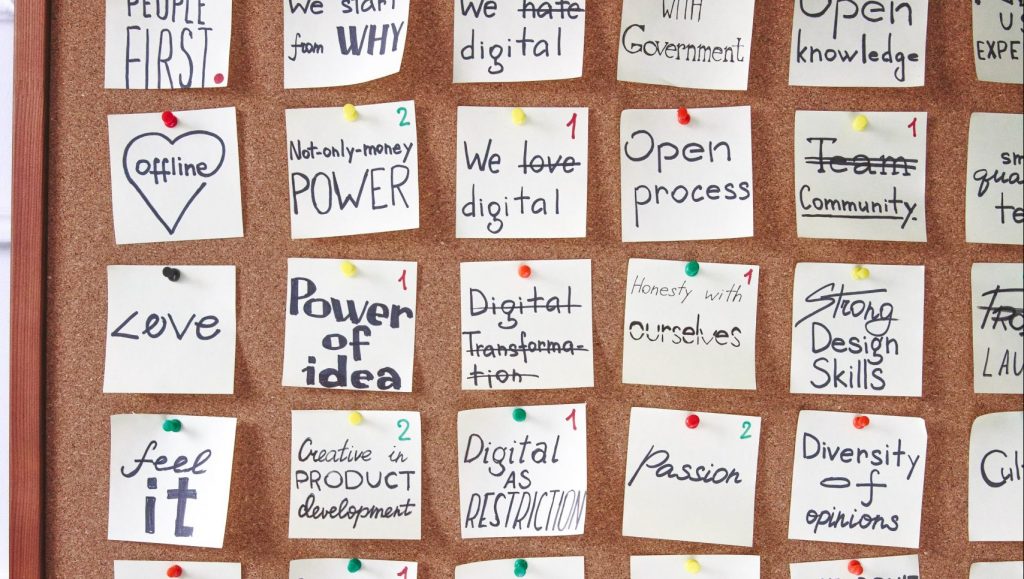 PEOPLE
FIRST.
We start
from WHY
We hate
digital
WITH
Government
Open
knowledge
US
EXPE
offline
2
Not-only-money
POWER
1
We love
digital
Open
process
1
Team
Community.
sm
qua
te
Love
1
Power
of
idea
Digital
Transforma-
tion
1
Honesty with
ourselves
Strong
Design
Skills
LAU
feel
it
2
Creative in
PRODUCT
development
1
Digital
AS
RESTRICTION
2
Passion
Diversity
of
opinions
Cul
1